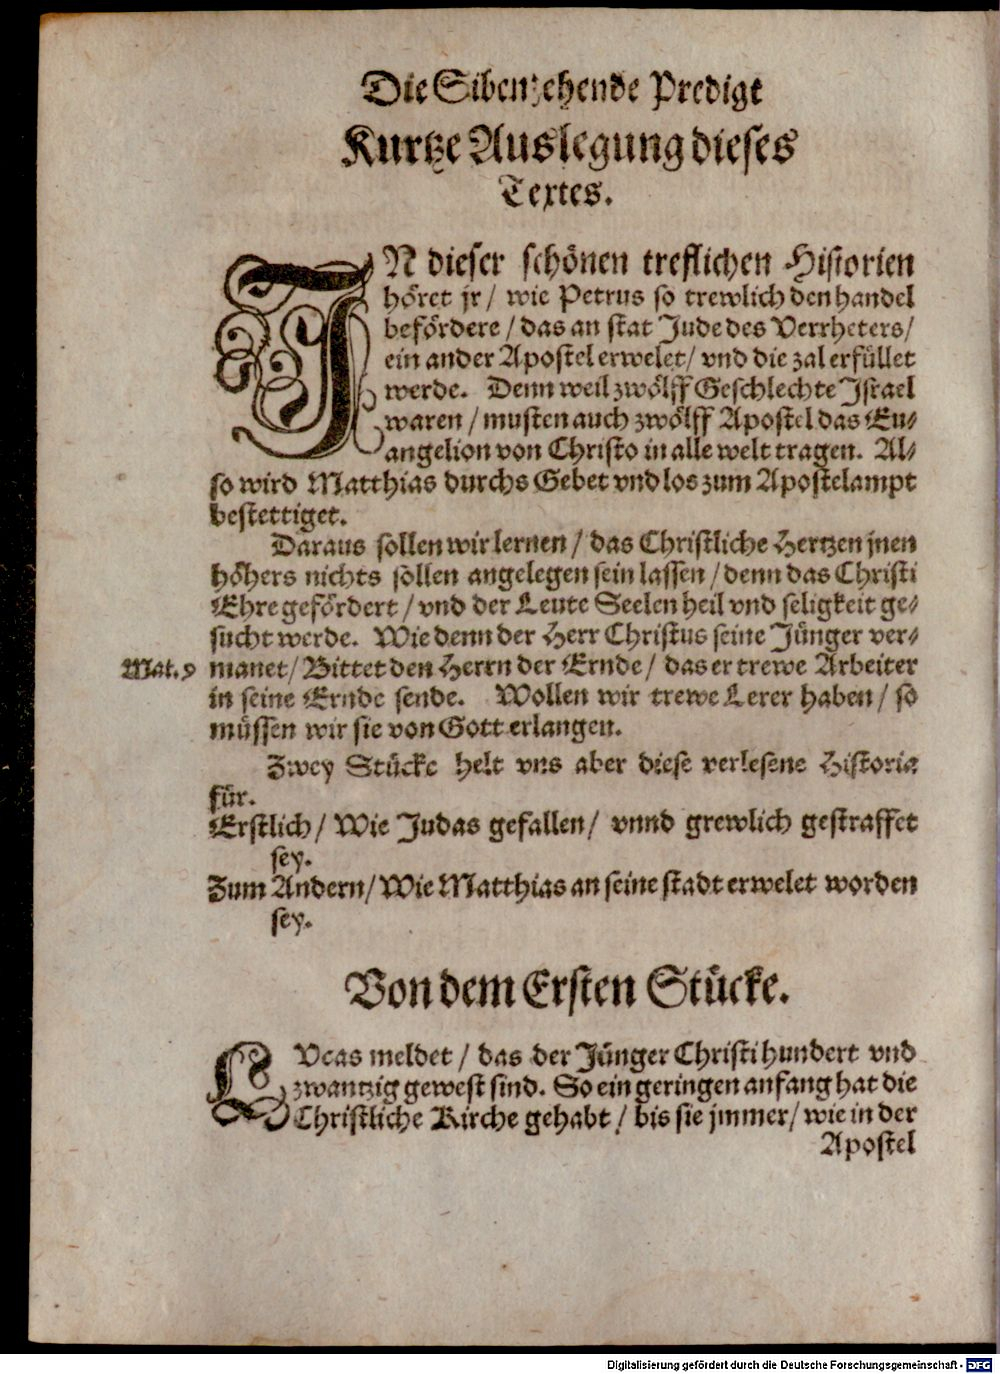 Die Sibenzehende Predigt
Kurtze Auslegung dieses
Textes.
IN dieser schönen treflichen Historien
höret jr / wie Petrus so trewlich den handel
befördere / das an stat Jude des Verrheters /
ein ander Apostel erwelet / vnd die zal erfüllet
werde. Denn weil zwölff Geschlechte Israel
waren / musten auch zwölff Apostel das Eu-
angelion von Christo in alle welt tragen. Al-
so wird Matthias durchs Gebet vnd los zum Apostelampt
bestettiget.
Daraus sollen wir lernen / das Christliche Hertzen jnen
höhers nichts sollen angelegen sein lassen / denn das Christi
Ehre gefördert / vnd der Leute Seelen heil vnd seligkeit ge-
sucht werde. Wie denn der Herr Christus seine Jünger ver-
Mat. 9 manet / Bittet den Herrn der Ernde / das er trewe Arbeiter
in seine Ernde sende. Wollen wir trewe Lerer haben / so
müssen wir sie von Gott erlangen.
Zwey Stücke helt vns aber diese verlesene Historia
für.
Erstlich / Wie Judas gefallen / vnnd grewlich gestraffet
sey.
Zum Andern / Wie Matthias an seine stadt erwelet worden
sey.
Von dem Ersten Stücke.
LVcas meldet / das der Jünger Christi hundert vnd
zwantzig gewest sind. So ein geringen anfang hat die
Christliche Kirche gehabt / bis sie jmmer / wie in der
Apostel
Digitalisierung gefördert durch die Deutsche Forschungsgemeinschaft - DFG